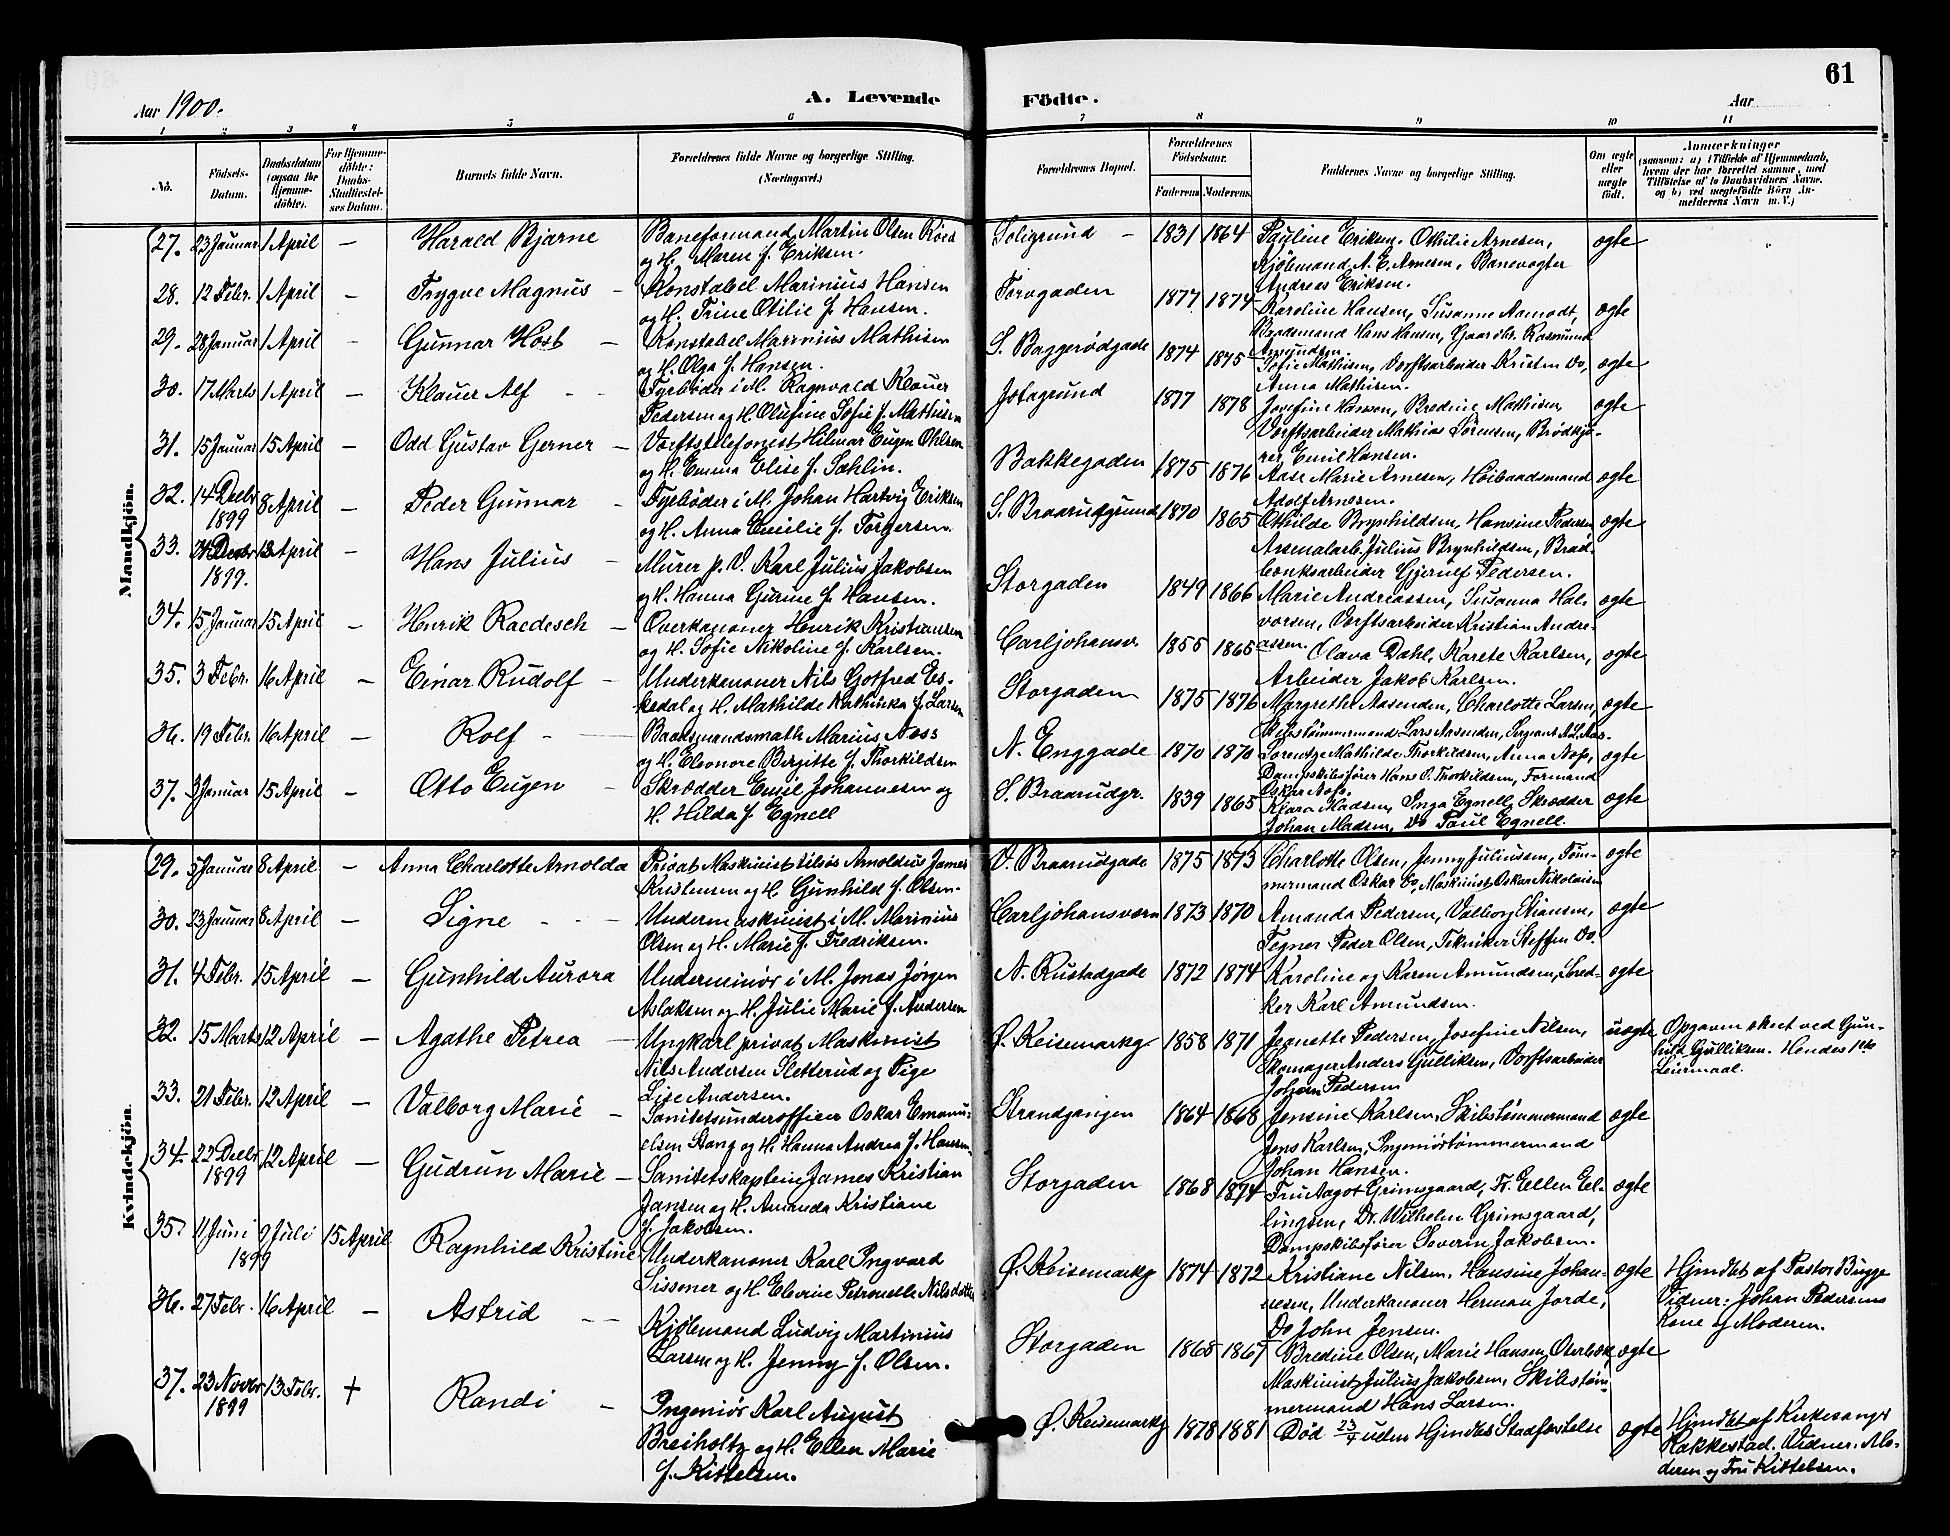 61
Aar 1900.
A. Levende
Födte.
Aar
1 2 3 4 5 6 7 8 9 10 11
No.
Födsels-Datum.
Daabsdatum (ogsaa for Hjemme-döbte).
For Hjemme-döbte: Daabs-Stadfæstel-ses Datum.
Barnets fulde Navn.
Forældrenes fulde Navne og borgerlige Stilling. (Næringsvei.)
Forældrenes Bopæl.
Forældrenes Födselsaar.
Faderens. Moderens.
Faddernes Navne og borgerlige Stilling.
Om ægte eller uægte født.
Anmærkninger
(saasom: a) i Tilfælde af Hjemmedaab, hvem der har forrettet samme, med Tilföielse af to Daabsvidners Navne, og b) ved uægtefödte Börn An-melderens Navn m. V.)
Mandkjön.
27. 23 Januar 1 April – Harald Bjarne
Baneformand Martin Olsen Röed
og H. Maren f. Eriksen.
Soligrund – 1831 1864
Pauline Eriksen, Othilie Arnesen,
Kjöbmand A. E. Arnesen, Banevogter
Andreas Eriksen.
ægte
28. 12 Febr. 1 April – Trygve Magnus –
Konstabel Marinius Hansen
og H. Trine Otilie f. Hansen.
Torvgaden 1877 1874
Karoline Hansen, Susanne Aamodt,
Baadsmand Hans Hansen, Gaardbr. Rasmund
Amundsen.
ægte
29. 28 Januar 1 April – Gunnar Höst –
Konstabel Marinius Mathisen
og H. Olga f. Hansen.
S. Baggerödgade 1874 1875
Sofie Mathisen, Værftsarbeider Kristen Do,
Anna Mathisen.
ægte
30. 17 Marts 1 April – Klauer Alf – –
Fyrböder i M. Ragnvald Klauer
Pedersen og H. Olufine Sofie f. Mathisen
Jotagrund 1877 1878
Josefine Hansen, Bredine Mathisen,
Værftsarbeider Mathias Sörensen, Brödkjö-
rer Emil Hansen.
ægte
31. 15 Januar 15 April – Odd Gustav Gerner –
Værftstelefonist Hilmar Eugen Ohlsen
og H. Emma Elise f. Sæhlin.
Bakkegaden 1875 1876
Aase Marie Arnesen, Höibaadsmand
Adolf Arnesen.
ægte
32. 14 Decbr 1899 8 April – Peder Gunnar –
Fyrböder i M. Johan Hartvig Eriksen
og H. Anna Emilie f. Torgersen.
S. Braarudgrund 1870 1865
Othilde Brynhildsen, Hansine Pedersen
Arsenalarb. Julius Brynhildsen, Brød-
Gjerulf Pedersen.
ægte
33. Decbr 1899. April – Hans Julius –
Murer p. V. Karl Julius Jakobsen
og H. Hanna Gurine f. Hansen.
Storgaden 1849 1866
Marie Andreassen, Susanna Hal-
vorsen, Værftsarbeider Kristian Andre-
assen.
ægte
34. 15 Januar 15 April – Henrik Raedesch –
Overkanoner Henrik Kristiansen
og H. Sofie Nikoline f. Karlsen.
Carljohansv. 1855 1865
Olava Dahl, Karete Karlsen,
Arbeider Jakob Karlsen.
ægte
35. 3 Febr. 16 April – Einar Rudolf –
Underkanoner Nils Gotfred Es-
kedal og H. Mathilde Kathinka f. Larsen
Storgaden 1875 1876
Margrethe Aasenden, Charlotte Larsen,
Skibstömmermand Lars Aasenden, Sergeant A. L. Aas.
ægte
36. 19 Febr. 16 April – Rolf – –
Baadsmandsmath Marius Næss
og H. Eleonore Birgitte f. Thorkildsen
N. Enggade 1870 1870
Lorentze Mathilde Thorkildsen, Anna Næss,
Dampskibsförer Hans O. Thorkildsen, Formand
Oskar Næss.
ægte
37. 3 Januar 15 April – Otto Eugen –
Skrædder Emil Johannesen og
H. Hilda f. Egnell
S. Braarudgr. 1839 1865
Klara Madsen, Inga Egnell, Skrædder
Johan Madsen, Do Paul Egnell.
ægte
Kvindekjön.
29. 5 Januar 8 April – Anna Charlotte Arnolda
Privat Maskinist Arnoldius James
Kristensen og H. Gunhild f. Olsen.
V. Braarudgade 1875 1873
Charlotte Olsen, Jenny Juliussen, Töm-
mermand Oskar Do, Maskinist Oskar Nikolaisen
ægte
30. 23 Januar 8 April – Signe – –
Undermaskinist i M. Marinius
Olsen og H. Marie f. Fredriksen.
Carljohansværn 1873 1870
Amanda Pedersen, Valborg Stiansen,
Tegner Peder Olsen, Tekniker Steffen Do.
ægte
31. 4 Febr. 15 April – Gunhild Aurora
Underminör i M. Jonas Jörgen
Aslaksen og H. Julie Marie f. Andersen
N. Rustadgade 1872 1874
Karoline og Karen Amundsen, Sned-
ker Karl Amundsen.
ægte
32. 15 Marts 12 April – Agathe Petrea –
Ungkarl privat Maskinist
Nils Andersen Sletterud og Pige
Lise Andersen.
Ø. Keisemarkg. 1858 1871
Jeanette Pedersen, Josefine Nilsen,
Skomager Anders Gulliksen, Værftsarbeider
Johan Pedersen
uægte
Opgaven skeet ved Gun-
hild Gulliksen. Hendes 1ste
Leiermaal.
33. 21 Febr. 12 April – Valborg Marie –
Sanitetsunderofficer Oskar Emanu-
elsen Stang og H. Hanna Andrea f. Hansen
Strandgangen 1864 1868
Jensine Karlsen, Skibstömmermand
Jens Karlsen, Ingeniörtömmermand
Johan Hansen.
ægte
34. 22 Decbr 1899 12 April – Gudrun Marie –
Sanitetskaptein James Kristian
Jansen og H. Amanda Kristiane
f. Jakobsen.
Storgaden 1868 1874
Fru Aagot Grimsgaard, Fr. Ellen El-
lingsen, Dr. Wilhelm Grimsgaard,
Dampskibsförer Severin Jakobsen.
ægte
35. 11 Juni 9 Juli 1899 15 April Ragnhild Kristine
Underkanoner Karl Ingvard
Sissener og H. Elevine Petronelle Nilsdatter
Ø. Keisemarkg 1874 1872
Kristiane Nilsen, Hansine Johan-
nesen, Underkanoner Herman Jorde,
Do John Jensen.
ægte
Hjmdöbt af Pastor Bugge
Vidner: Johan Pedersens
Kone og Moderen.
36. 27 Febr. 16 April – Astrid – –
Kjöbmand Ludvig Martinius
Larsen og H. Jenny f. Olsen.
Storgaden 1865 1867
Bredine Olsen, Marie Hansen Osterbæk,
Maskinist Julius Jakobsen, Skibstöm-
mermand Hans Larsen.
ægte
37. 23 Novbr 1899 13 Febr. † Randi –
Ingeniör Karl August
Breiholtz og H. Ellen Marie
f. Kittelsen.
Ø. Keisemarkg 1878 1881
Död 23/4 uden Hjmdöbs Stadfæstelse
ægte
Hjmdöbt af Kirkesanger
Hakkestad. Vidner: Mo-
deren og Fru Kittelsen.